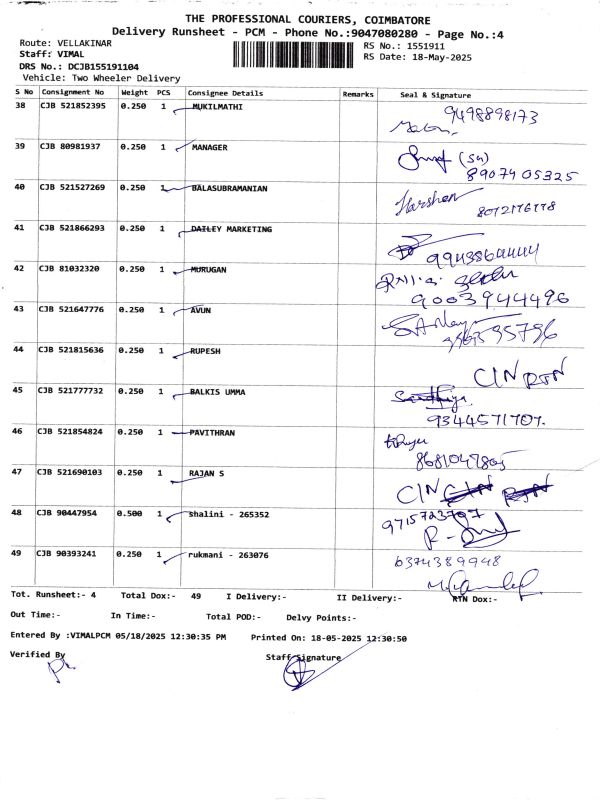 THE PROFESSIONAL COURIERS, COIMBATORE
Delivery Runsheet - PCM - Phone No.:9047080280 - Page No.:4
Route: VELLAKINAR
RS No.: 1551911
Staff: VIMAL
RS Date: 18-May-2025
DRS No.: DCJB155191104
Vehicle: Two Wheeler Delivery
S No Consignment No Weight PCS Consignee Details Remarks Seal & Signature
38 CJB 521852395 0.250 1 MUKILMATHI 9498898173
39 CJB 80981937 0.250 1 MANAGER
8907405325
40 CJB 521527269 0.250 1 BALASUBRAMANIAN Harshan
41 CJB 521866293 0.250 1 DAILEY MARKETING
42 CJB 81032320 0.250 1 MURUGAN
9003944496
43 CJB 521647776 0.250 1 AVUN
44 CJB 521815636 0.250 1 RUPESH
CIN RTN
45 CJB 521777732 0.250 1 BALKIS UMMA
9344571707.
46 CJB 521854824 0.250 1 PAVITHRAN
47 CJB 521690103 0.250 1 RAJAN S
CIN
48 CJB 90447954 0.500 1 shalini - 265352
49 CJB 90393241 0.250 1 rukmani - 263076 6374389948
Tot. Runsheet:- 4 Total Dox:- 49 I Delivery:- II Delivery:- RTN Dox:-
Out Time:- In Time:- Total POD:- Delvy Points:-
Entered By :VIMALPCM 05/18/2025 12:30:35 PM Printed On: 18-05-2025 12:30:50
Verified By Staff Signature